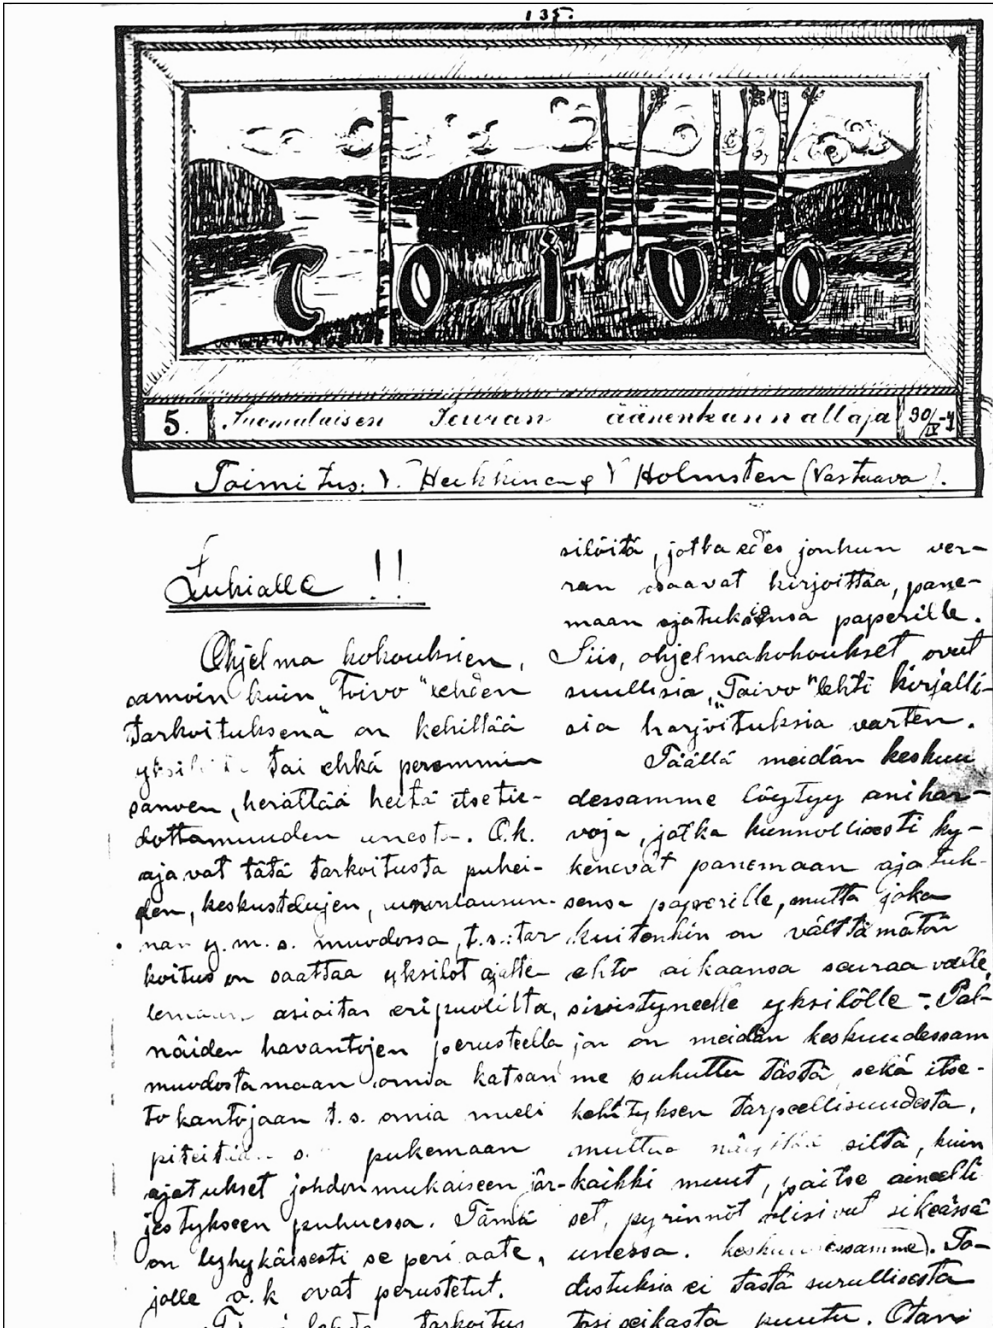 135.
Toivo
5. Suomalaisen Seuran äänenkannattaja 30/IX-
Toimitus: Y. Heikkinen & Y Holmsten (Vastaava).
Lukialle!!
Ohjelma kokouksien,
samoin kuin "Toivo" lehden
tarkoituksena on kehittää
tai ehkä paremmin
sanoen, herättää heitä itsetie-
dottomuuden unesta. O.k.
ajavat tätä tarkoitusta puhei-
den, keskustelujen, runonlausun-
nan y.m.s. muodossa, t.s. tar
koitus on saattaa yksilöt ajatte
lemaan asioita eripuolilta,
näiden havantojen perusteella
muodostamaan omia katsan
tokantojaan t.s. omia mieli
piteitään pukemaan
ajatukset johdonmukaiseen jär-
jestykseen puhuessa. Tämä
on lyhykäisesti se periaate,
jolle o.k ovat perustetut.
lehde tarkoitus
silöitä, jotka edes jonkun ver-
ran osaavat kirjoittaa, pane-
maan ajatuksensa paperille.
Siis, ohjelmakokoukset ovat
suullisia, "Toivo" lehti kirjalli-
sia harjoituksia varten.
Täällä meidän keskuu
dessamme löytyy ani har-
voja, jotka kunnollisesti ky-
kenevät panemaan ajatuk-
sensa paperille, mutta joka
kuitenkin on välttämätön
ehto aikaansa seuraavalle,
sivistyneelle yksilölle - Pal-
jon on meidän keskuudessam
me puhuttu tästä, sekä itse-
kehityksen tarpeellisuudesta,
mutta näyttää siltä, kuin
kaikki muut, paitse aineelli
set, pyrinnöt olisivat sikeässä
unessa. keskuudessamme). To-
distuksia ei tästä surullisesta
tosiseikasta puutu. Otan